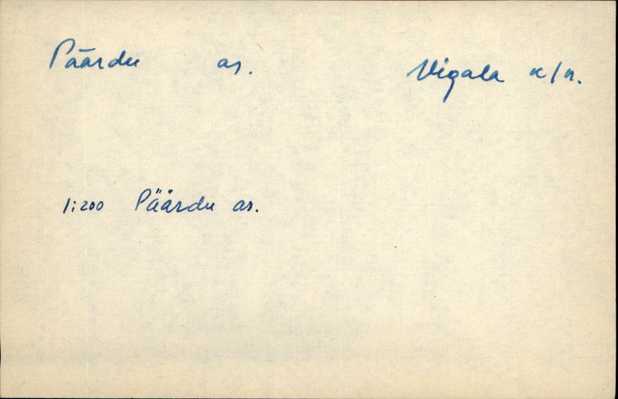 Päärdu as. Vigala k/n.
1:200 Päärdu as.